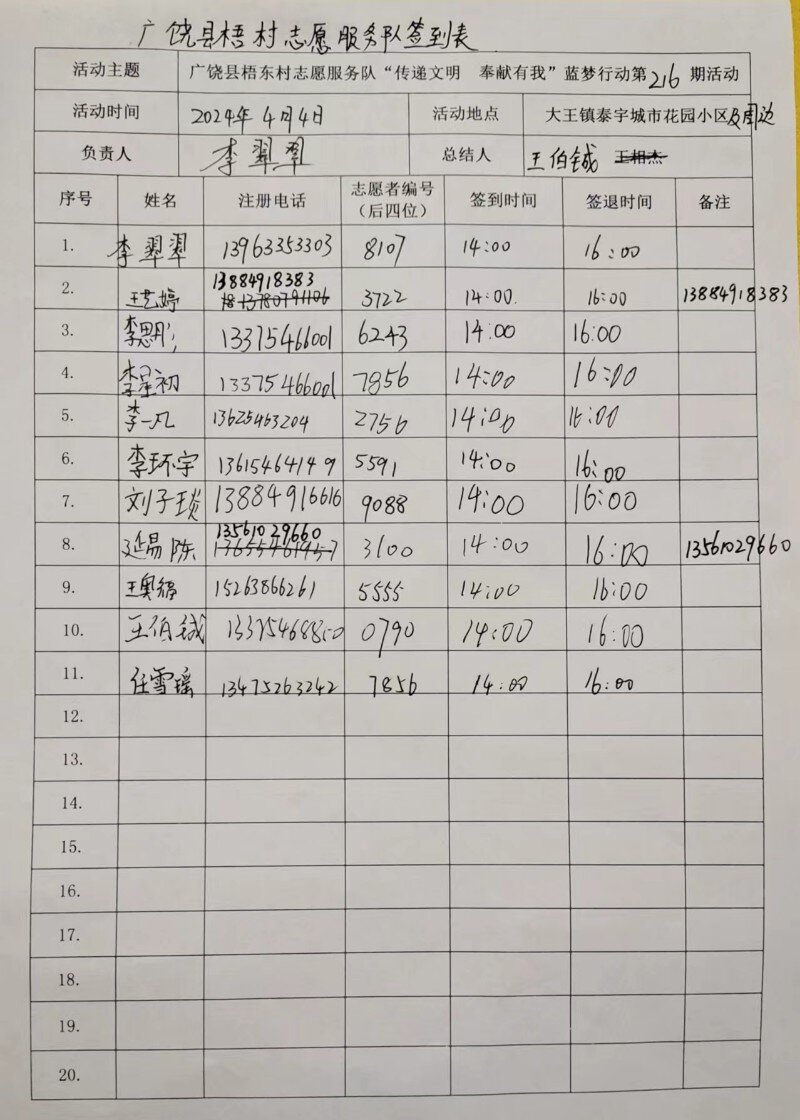 广饶县梧村志愿服务队签到表
活动主题 广饶县梧东村志愿服务队“传递文明 奉献有我”蓝梦行动第216期活动
活动时间 2024年4月4日 活动地点 大王镇泰宇城市花园小区及周边
负责人 李翠翠 总结人 王伯铖 王相杰
序号 姓名 注册电话 志愿者编号（后四位） 签到时间 签退时间 备注
1. 李翠翠 13963353303 8107 14:00 16:00
2. 王艺婷 13884918383 3722 14:00 16:00 13884918383
3. 李思彤 13375466001 6243 14:00 16:00
4. 李星初 13375466001 7856 14:00 16:00
5. 李一凡 13625463204 2756 14:00 16:00
6. 李环宇 13615464149 5591 14:00 16:00
7. 刘子琰 13884916616 9088 14:00 16:00
8. 延易陈 13561029660 3100 14:00 16:00 13561029660
9. 15263866261 5555 14:00 16:00
10. 王伯铖 13375468850 0790 14:00 16:00
11. 任雪瑶 13475263242 7856 14:00 16:00
12.
13.
14.
15.
16.
17.
18.
19.
20.